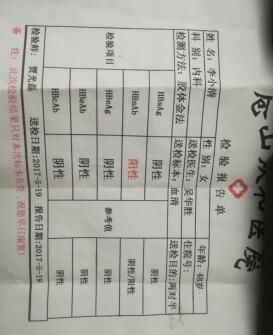 医院
检验报告单
姓名：李小清 性别：女 年龄：48岁
科别：内科 送检医生：吴华胜 住院号：
检测方法：胶体金法 送检标本：血清 送检目的：两对半
检验项目 参考值
HBsAg 阴性 阴性
HBsAb 阳性 阴性/阳性
HBeAg 阴性 阴性
HBeAb 阴性 阴性
HBcAb 阴性 阴性
检验师：贾光磊 送检日期：2017-5-19 报告日期：2017-5-19
备 注：此次检验结果只对本次标本负责，祝您早日康复！